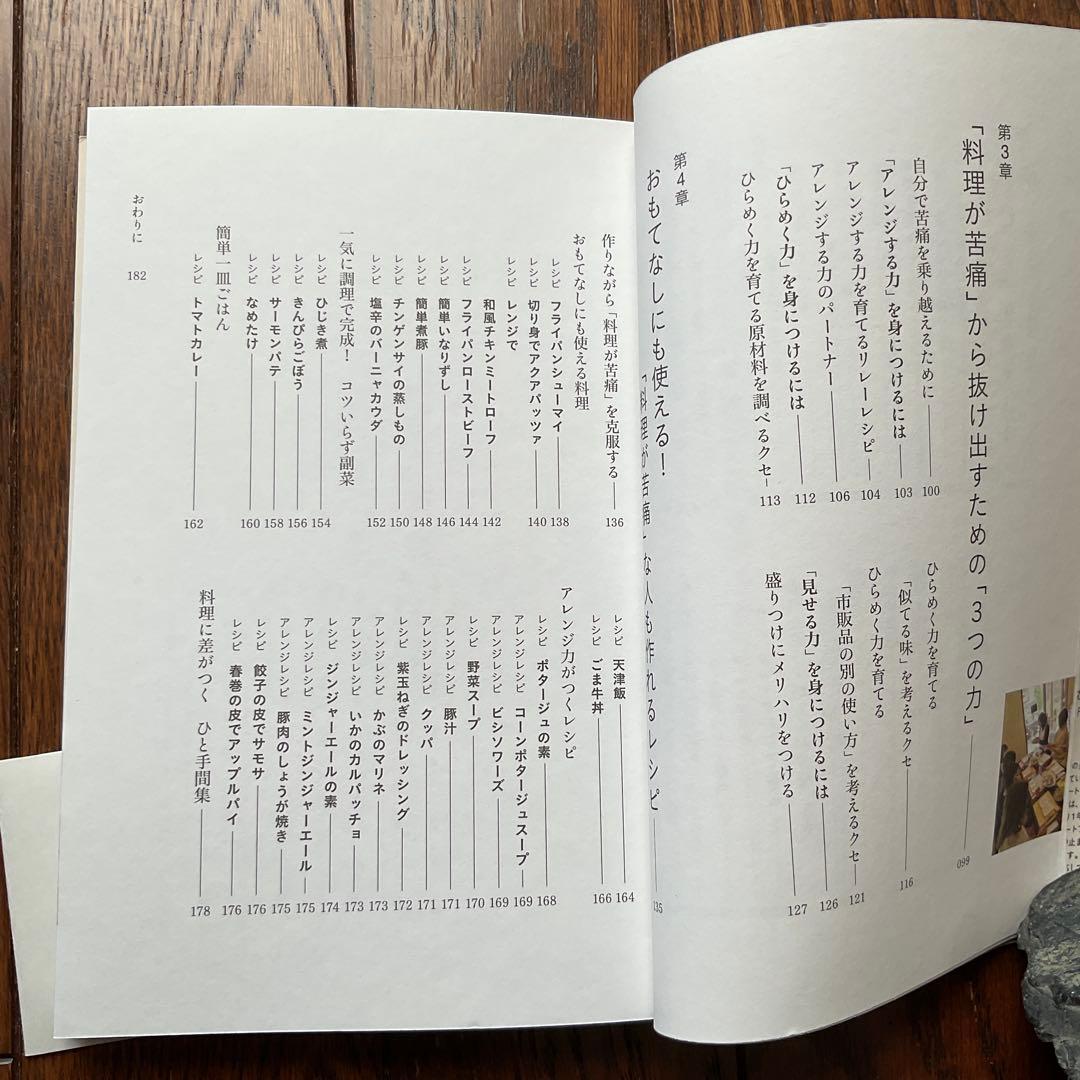 第3章
「料理が苦痛」から抜け出すための「3つの力」 099
自分で苦痛を乗り越えるために 100
「アレンジする力」を身につけるには 103
アレンジする力を育てるリレーレシピ 104
アレンジする力のパートナー 106
「ひらめく力」を身につけるには 112
ひらめく力を育てる原材料を調べるクセ 113
ひらめく力を育てる
「似てる味」を考えるクセ 116
ひらめく力を育てる
「市販品の別の使い方」を考えるクセ 121
「見せる力」を身につけるには 126
盛りつけにメリハリをつける 127
第4章
おもてなしにも使える!
「料理が苦痛」な人も作れるレシピ 135
作りながら「料理が苦痛」を克服する 136
おもてなしにも使える料理
レシピ フライパンシューマイ 138
レシピ 切り身でアクアパッツァ 140
レシピ レンジで
和風チキンミートローフ 142
レシピ フライパンローストビーフ 144
レシピ 簡単いなりずし 146
レシピ 簡単煮豚 148
レシピ チンゲンサイの蒸しもの 150
レシピ 塩辛のバーニャカウダ 152
一気に調理で完成! コツいらず副菜
レシピ ひじき煮 154
レシピ きんぴらごぼう 156
レシピ サーモンパテ 158
レシピ なめたけ 160
簡単一皿ごはん
レシピ トマトカレー 162
レシピ 天津飯 164
レシピ ごま牛丼 166
アレンジ力がつくレシピ
レシピ ポタージュの素 168
アレンジレシピ コーンポタージュスープ 169
アレンジレシピ ビシソワーズ 169
レシピ 野菜スープ 170
アレンジレシピ 豚汁 171
アレンジレシピ クッパ 171
レシピ 紫玉ねぎのドレッシング 172
アレンジレシピ かぶのマリネ 173
アレンジレシピ いかのカルパッチョ 173
レシピ ジンジャーエールの素 174
アレンジレシピ ミントジンジャーエール 175
アレンジレシピ 豚肉のしょうが焼き 175
レシピ 餃子の皮でサモサ 176
レシピ 春巻の皮でアップルパイ 176
料理に差がつく ひと手間集 178
おわりに 182